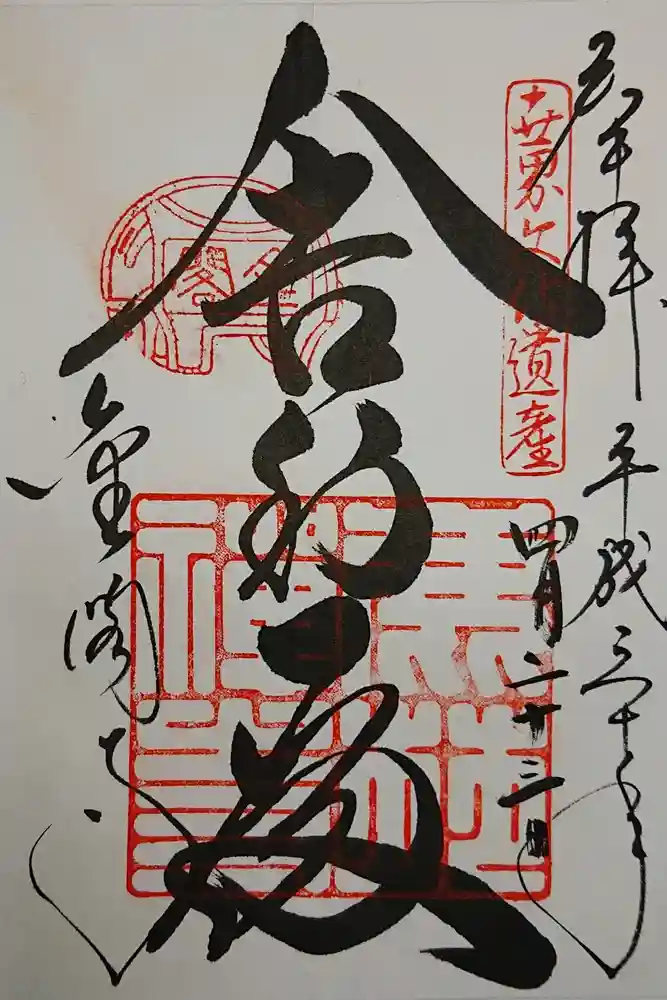 奉拝
平成三十年
四月二十三日
世界文化遺産
舎利殿
金閣
金閣寺